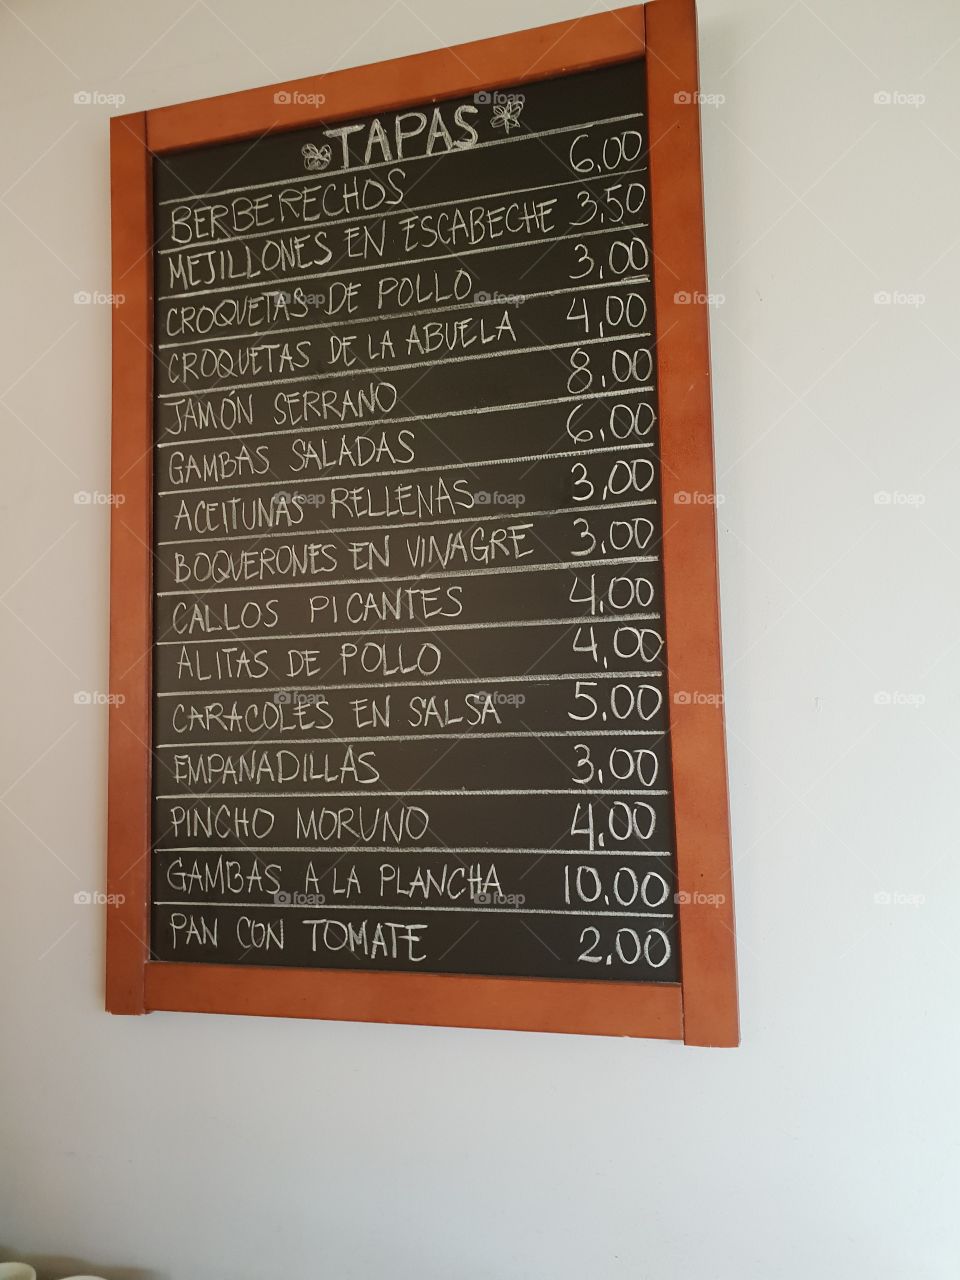 TAPAS
BERBERECHOS 6,00
MEJILLONES EN ESCABECHE 3,50
CROQUETAS DE POLLO 3,00
CROQUETAS DE LA ABUELA 4,00
JAMÓN SERRANO 8,00
GAMBAS SALADAS 6,00
ACEITUNAS RELLENAS 3,00
BOQUERONES EN VINAGRE 3,00
CALLOS PICANTES 4,00
ALITAS DE POLLO 4,00
CARACOLES EN SALSA 5.00
EMPANADILLAS 3,00
PINCHO MORUNO 4,00
GAMBAS A LA PLANCHA 10.00
PAN CON TOMATE 2.00